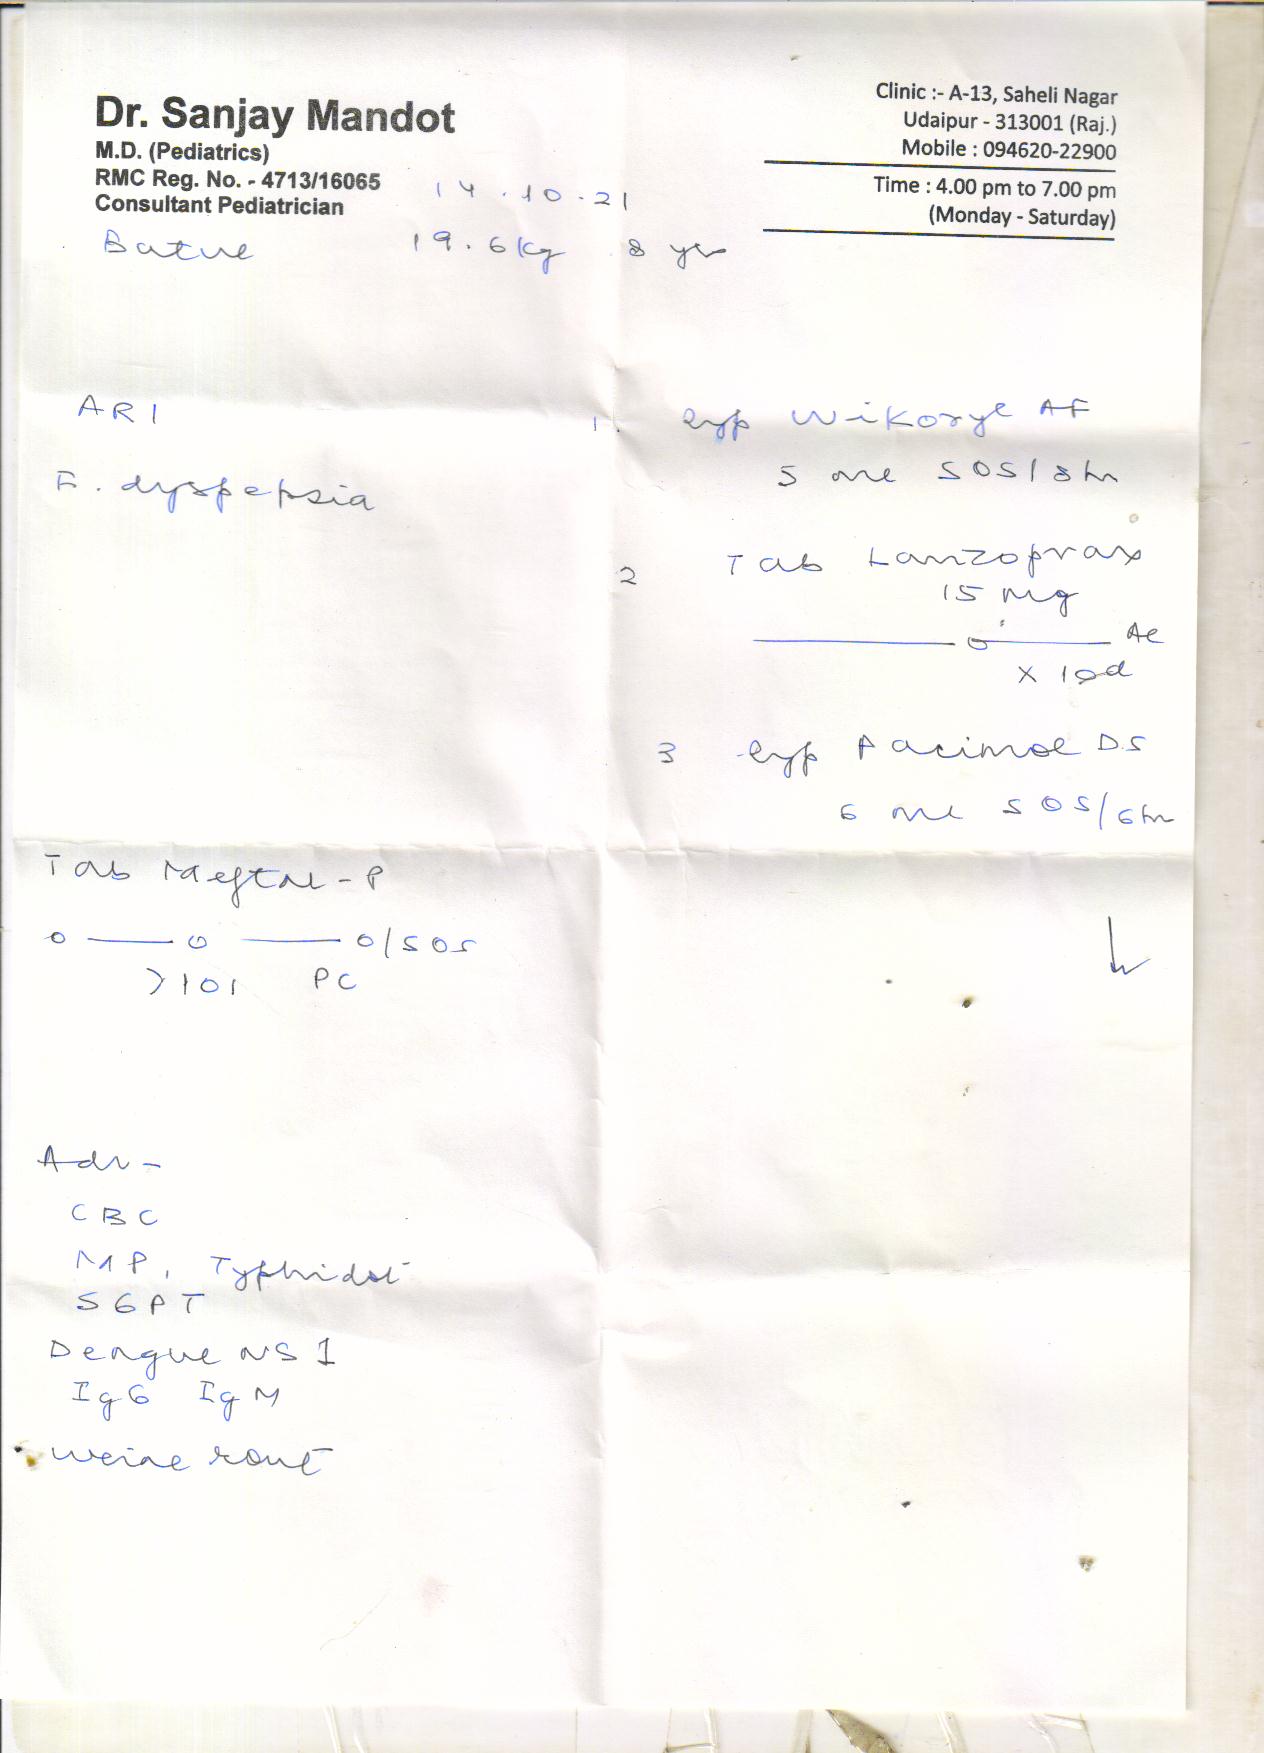 Dr. Sanjay Mandot
M.D. (Pediatrics)
RMC Reg. No. - 4713/16065
Consultant Pediatrician
Clinic :- A-13, Saheli Nagar
Udaipur - 313001 (Raj.)
Mobile : 094620-22900
Time : 4.00 pm to 7.00 pm
(Monday - Saturday)
14.10.21
19.6 kg 8 yr
ARI
F. dyspepsia
1. Syp Wikoryl AF
5 ml SOS/8hr
2 Tab Lanzoprax
15 mg
AC
x 10d
3 Syp Pacimol DS
6 ml SOS/6hr
Tab Meftal-P
0 — 0 — 0/SOS
>101 PC
Adv -
CBC
MP, Typhidot
SGPT
Dengue NS1
IgG IgM